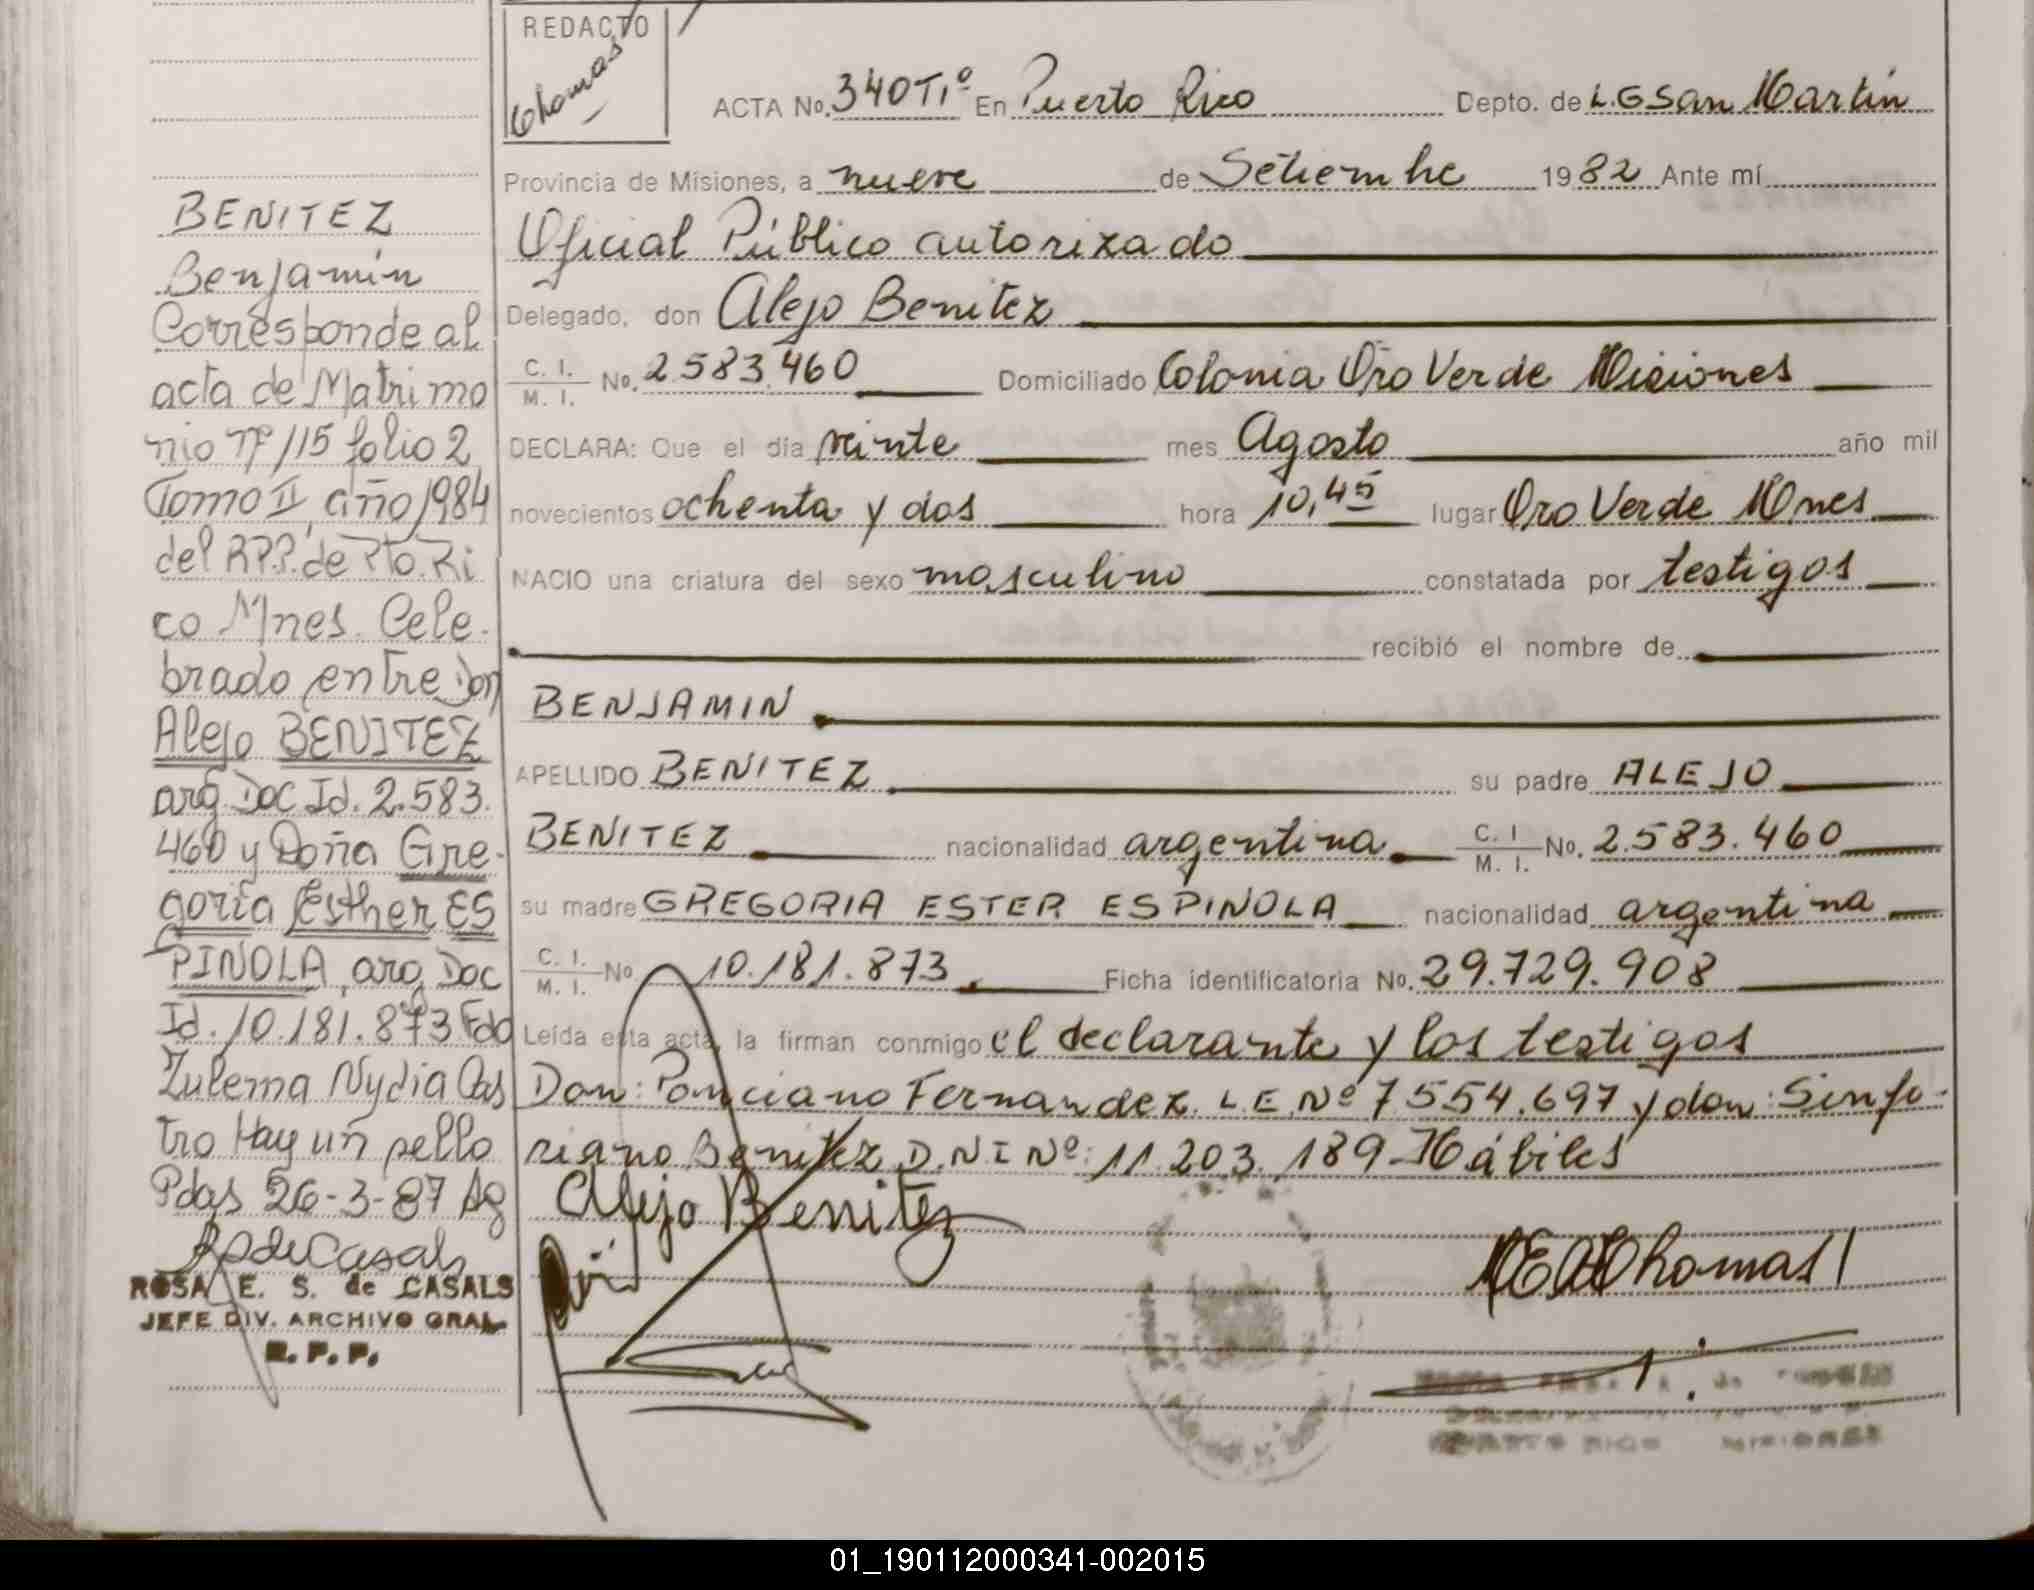 REDACTO
Thomas
ACTA No. 340 Tº En Puerto Rico Depto. de L.G San Martín
Provincia de Misiones, a nueve de Setiembre 1982 Ante mí
Oficial Público autorizado
Delegado, don Alejo Benitez
C. I. / M. I. No. 2.583.460 Domiciliado Colonia Oro Verde Misiones
DECLARA: Que el día veinte mes Agosto año mil
novecientos ochenta y dos hora 10,45 lugar Oro Verde Mnes
NACIO una criatura del sexo masculino constatada por testigos
recibió el nombre de
BENJAMIN
APELLIDO BENITEZ su padre ALEJO
BENITEZ nacionalidad argentina C. I. / M. I. No. 2.583.460
su madre GREGORIA ESTER ESPINOLA nacionalidad argentina
C. I. / M. I. No 10.181.873 Ficha identificatoria No. 29.729.908
Leída esta acta, la firman conmigo el declarante y los testigos
Don: Ponciano Fernandez L.E.Nº 7554.697 y don: Sinfo-
riano Benitez D.N.I Nº: 11.203.189-Hábiles
Alejo Benitez
Thomas
BENITEZ
Benjamín
Corresponde al
acta de Matrimo
nio nº 115 folio 2
Tomo II, año 1984
del R.P.P. de Pto. Ri
co Mnes. Cele-
brado entre Don
Alejo BENITEZ
arg. Doc Id. 2.583.
460 y Doña Gre-
goria Esther ES
PINOLA, arg. Doc
Id. 10.181.873 Fdo
Zulema Nydia Cas
tro Hay un sello
Pdas 26-3-87 Ag
RdeCasals
ROSA E. S. de CASALS
JEFE DIV. ARCHIVO GRAL
R. P. P.
PUERTO RICO MISIONES
01_190112000341-002015